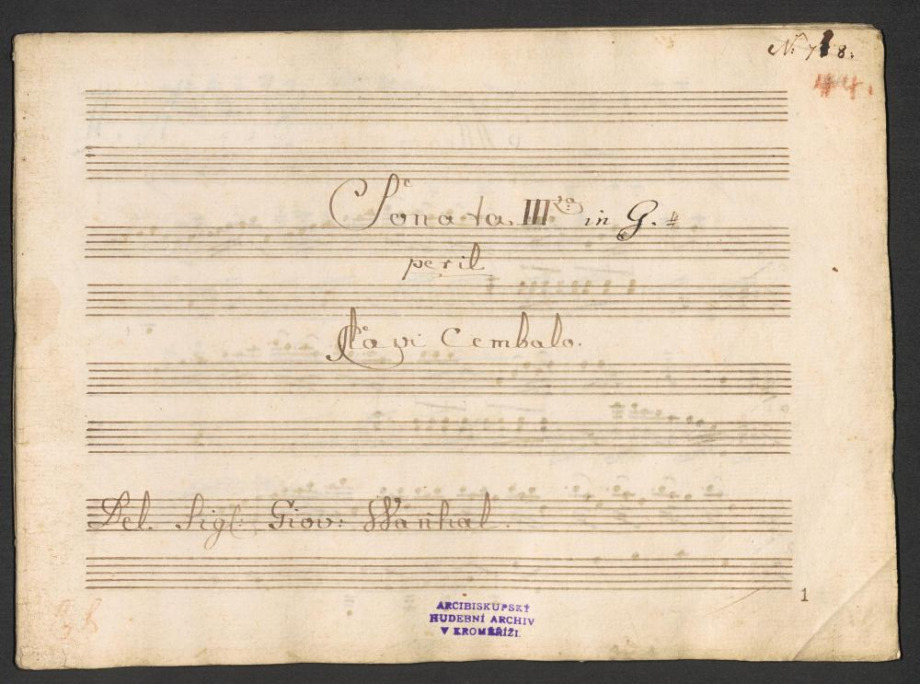 44.
Sonata III za in G. #
per il
Clavi Cembalo.
Del. Sigl: Giov: Wanhal.
1
ARCIBISKUPSKÝ
HUDEBNÍ ARCHIV
V KROMĚŘÍŽI.